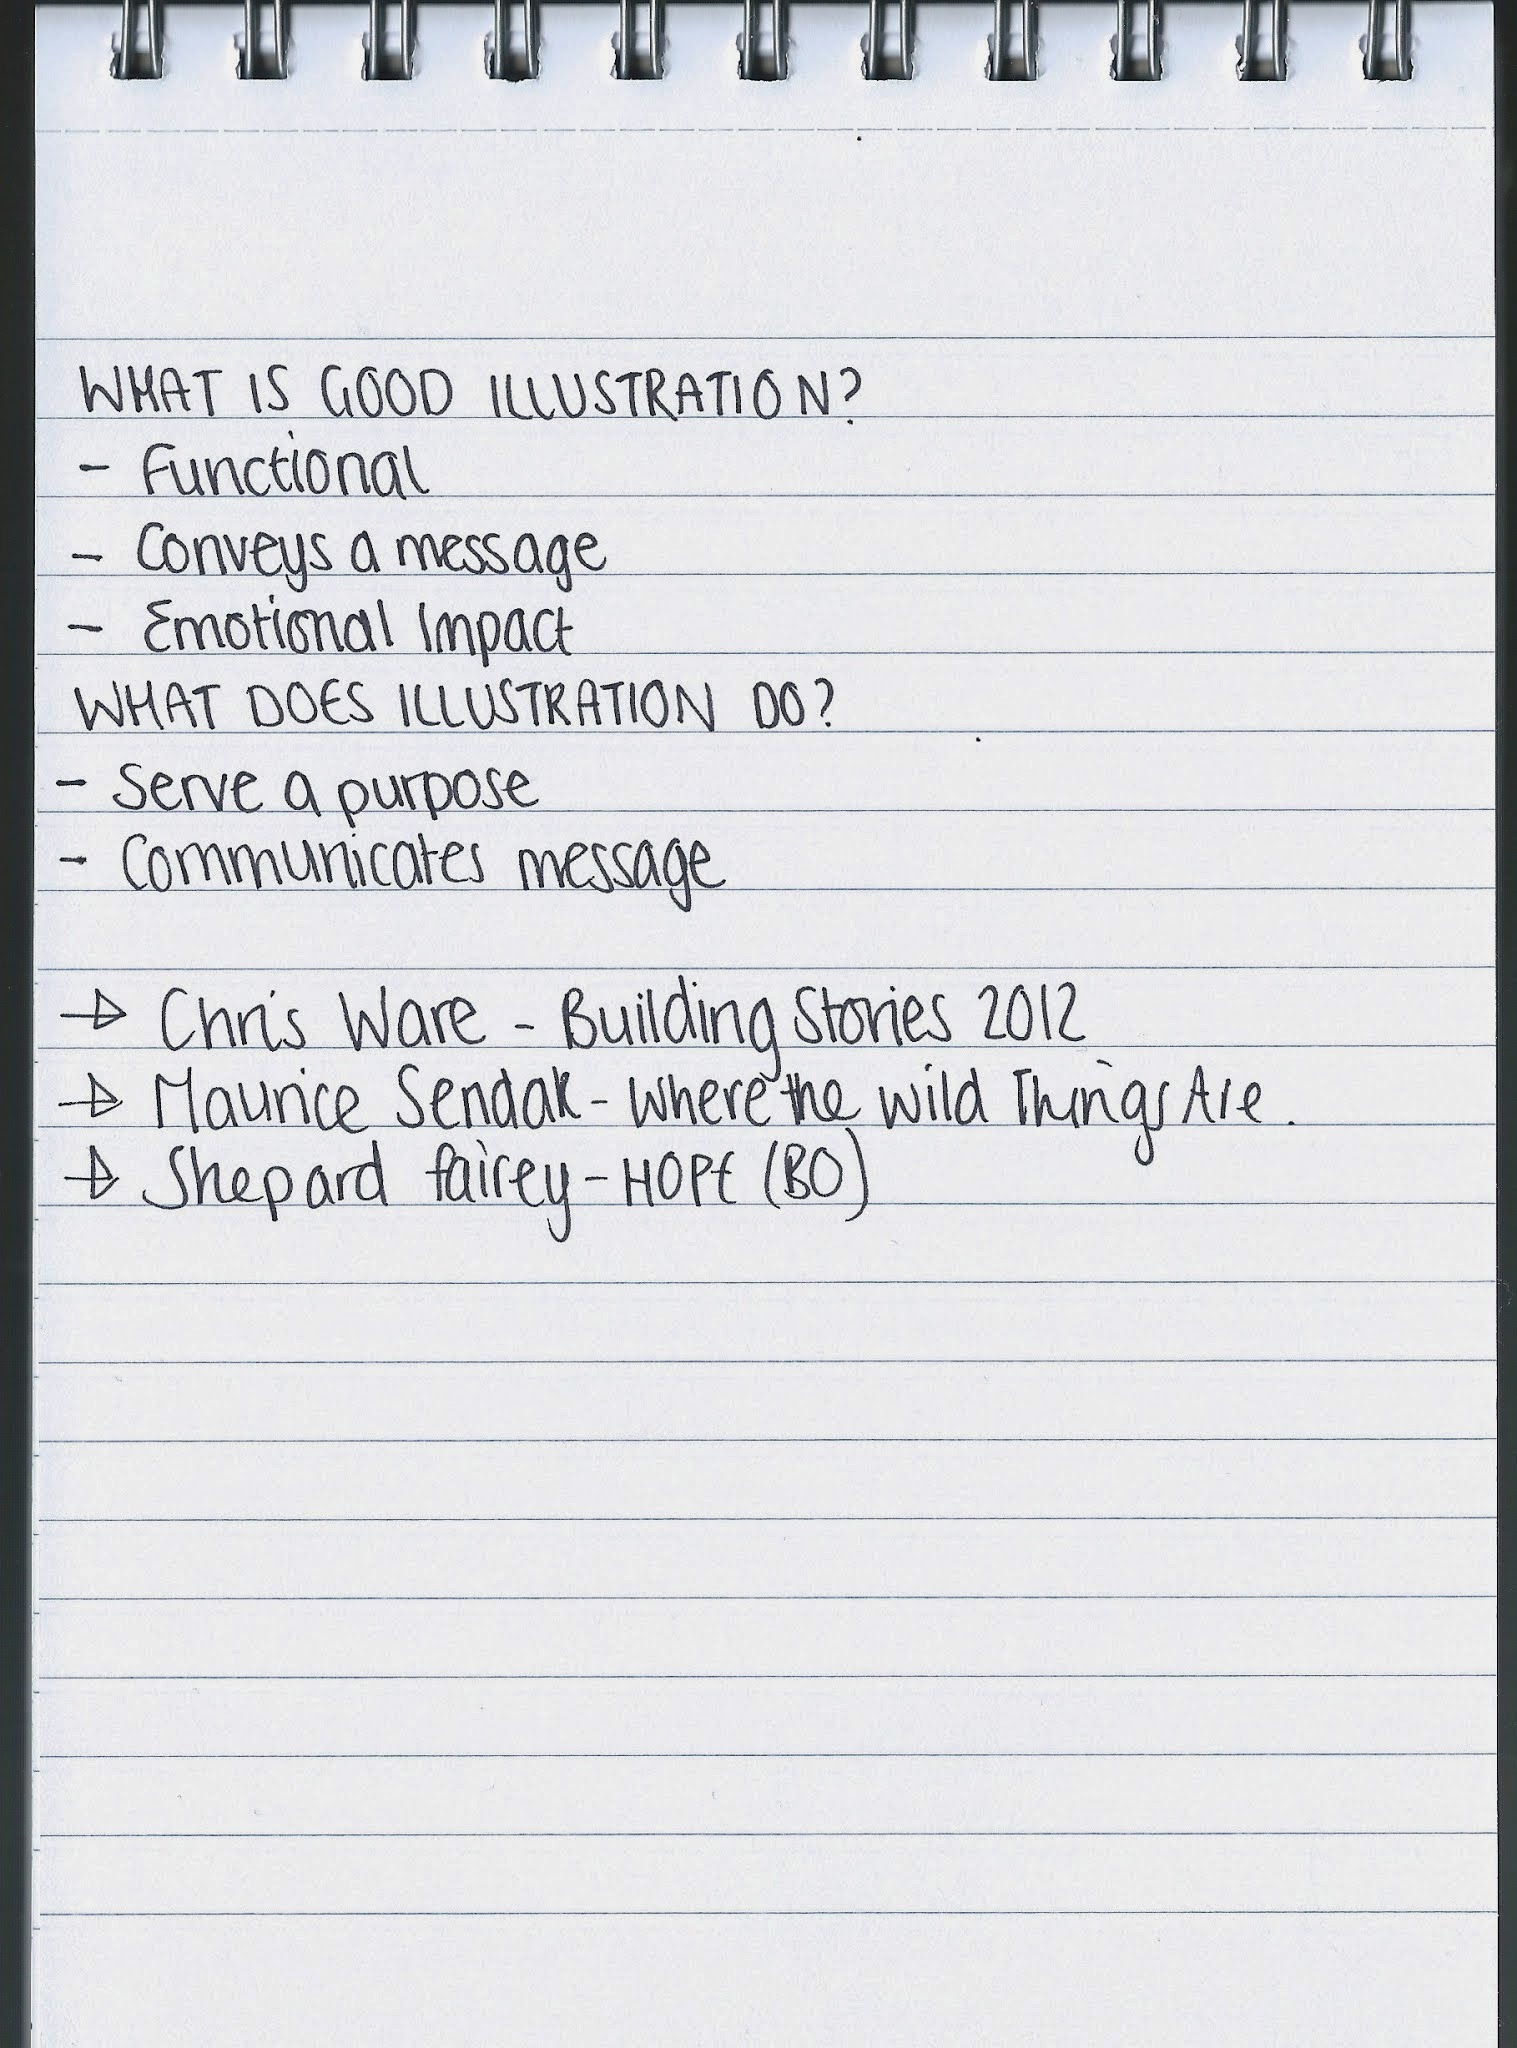 WHAT IS GOOD ILLUSTRATION?
- Functional
- Conveys a message
- Emotional Impact
WHAT DOES ILLUSTRATION DO?
- Serve a purpose
- Communicates message
→ Chris Ware - Building Stories 2012
→ Maurice Sendak - Where the Wild Things Are.
→ Shepard fairey - HOPE (BO)